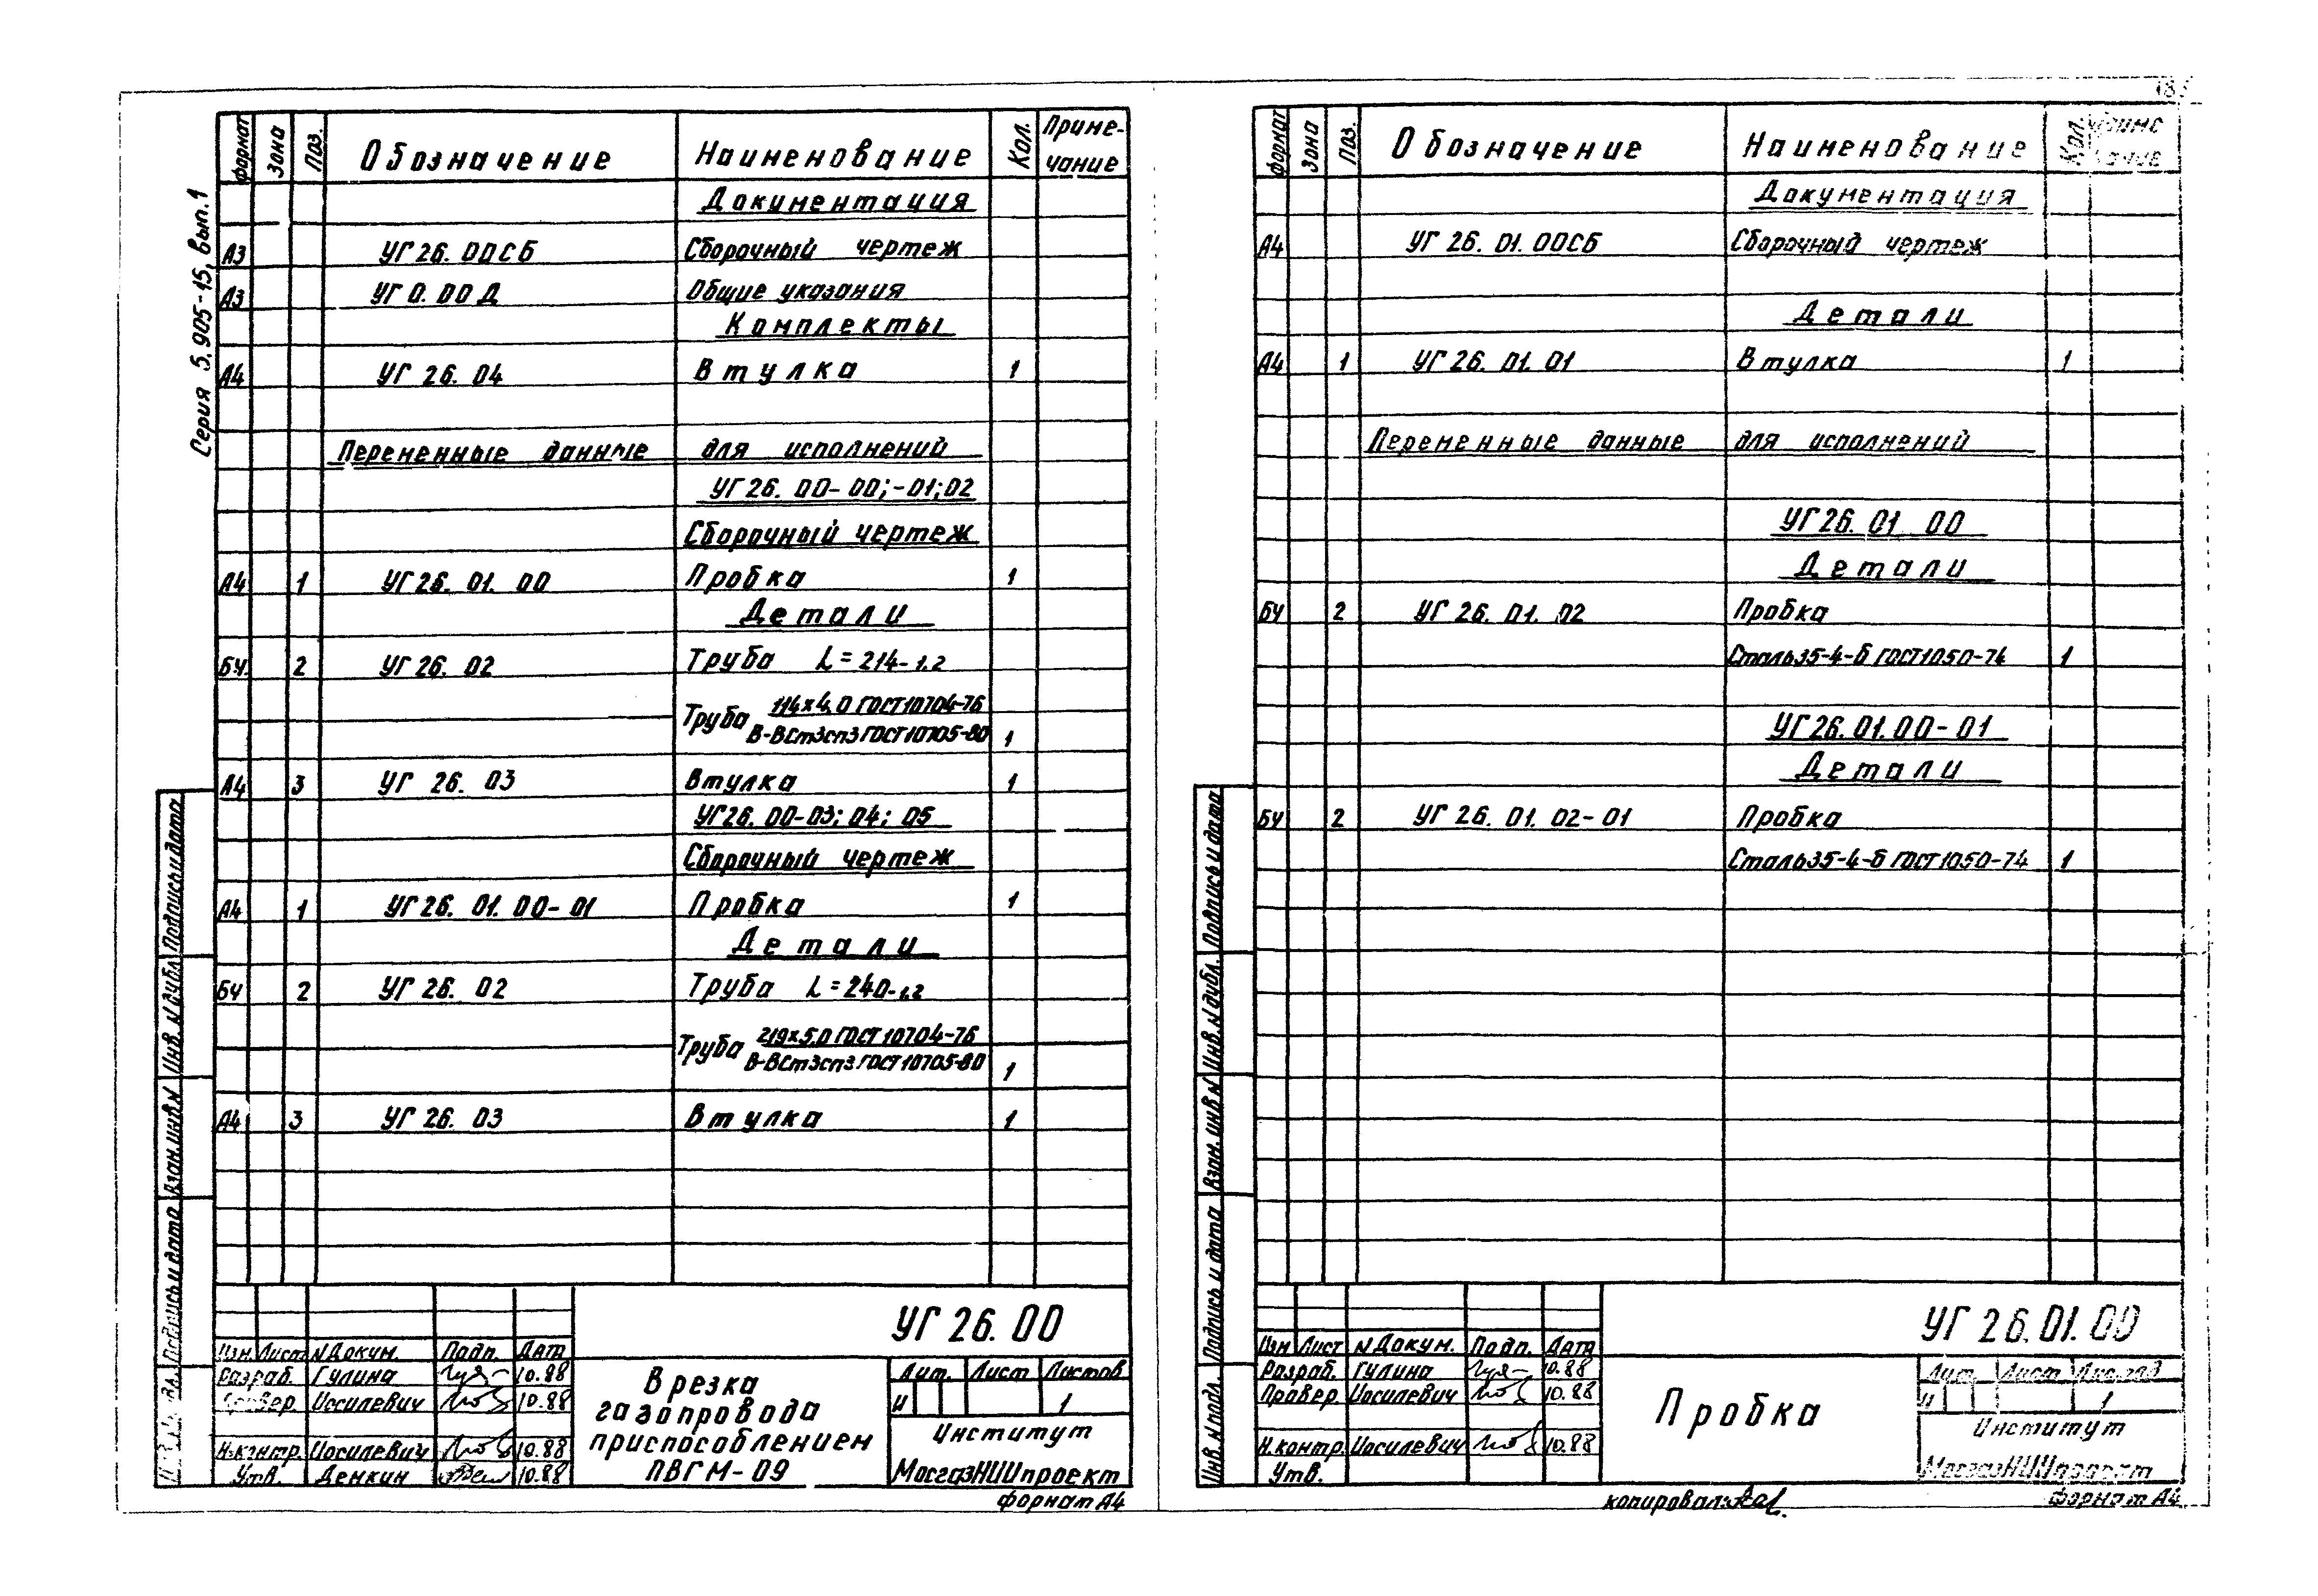 183
Серия 5.905-15, вып.1
формат Зона Поз. Обозначение Наименование Кол. Приме-
чание
Документация
А3 УГ 26. 00СБ Сборочный чертеж
А3 УГ 0. 00 Д Общие указания
Комплекты
А4 УГ 26. 04 Втулка 1
Переменные данные для исполнений
УГ26. 00-00;-01;02
Сборочный чертеж
А4 1 УГ26. 01. 00 Пробка 1
Детали
БЧ. 2 УГ 26. 02 Труба L=214-1,2
Труба 114×4,0 ГОСТ10704-76
В-ВСт3сп3 ГОСТ10705-80 1
А4 3 УГ 26. 03 Втулка 1
УГ26. 00-03; 04; 05
Сборочный чертеж
А4 1 УГ 26. 01. 00-01 Пробка 1
Детали
БЧ 2 УГ 26. 02 Труба L=240-1,2
Труба 219×5,0 ГОСТ 10704-76
В-ВСт3сп3 ГОСТ10705-80 1
А4 3 УГ 26. 03 Втулка 1
Подпись и дата
Инв. N дубл.
Взам. инв N
Подпись и дата
УГ 26. 00
Изм. Лист N Докум. Подп. Дата
Разраб. Гулина 10.88
Провер. Иосилевич 10.88
Н.контр. Иосилевич 10.88
Утв. Демкин 10.88
Врезка
газопровода
приспособлением
ПВГМ-09
Лит. Лист Листов
И 1
Институт
МосгазНИИпроект
формат А4
формат Зона Поз. Обозначение Наименование Кол. Приме
чание
Документация
А4 УГ 26. 01. 00СБ Сборочный чертеж
Детали
А4 1 УГ 26. 01. 01 Втулка 1
Переменные данные для исполнений
УГ26. 01. 00
Детали
БЧ 2 УГ 26. 01. 02 Пробка
Сталь35-4-б ГОСТ1050-74 1
УГ26.01.00-01
Детали
БЧ 2 УГ 26. 01. 02-01 Пробка
Сталь35-4-б ГОСТ1050-74 1
Подпись и дата
Инв. N дубл.
Взам. инв N
Подпись и дата
Инв. N подл.
УГ 26.01.00
Изм Лист N Докум. Подп. Дата
Разраб. Гулина 10.88
Провер. Иосилевич 10.88
Н.контр. Иосилевич 10.88
Утв.
Пробка
Лит. Лист Листов
И 1
Институт
МосгазНИИпроект
копировал:
формат А4